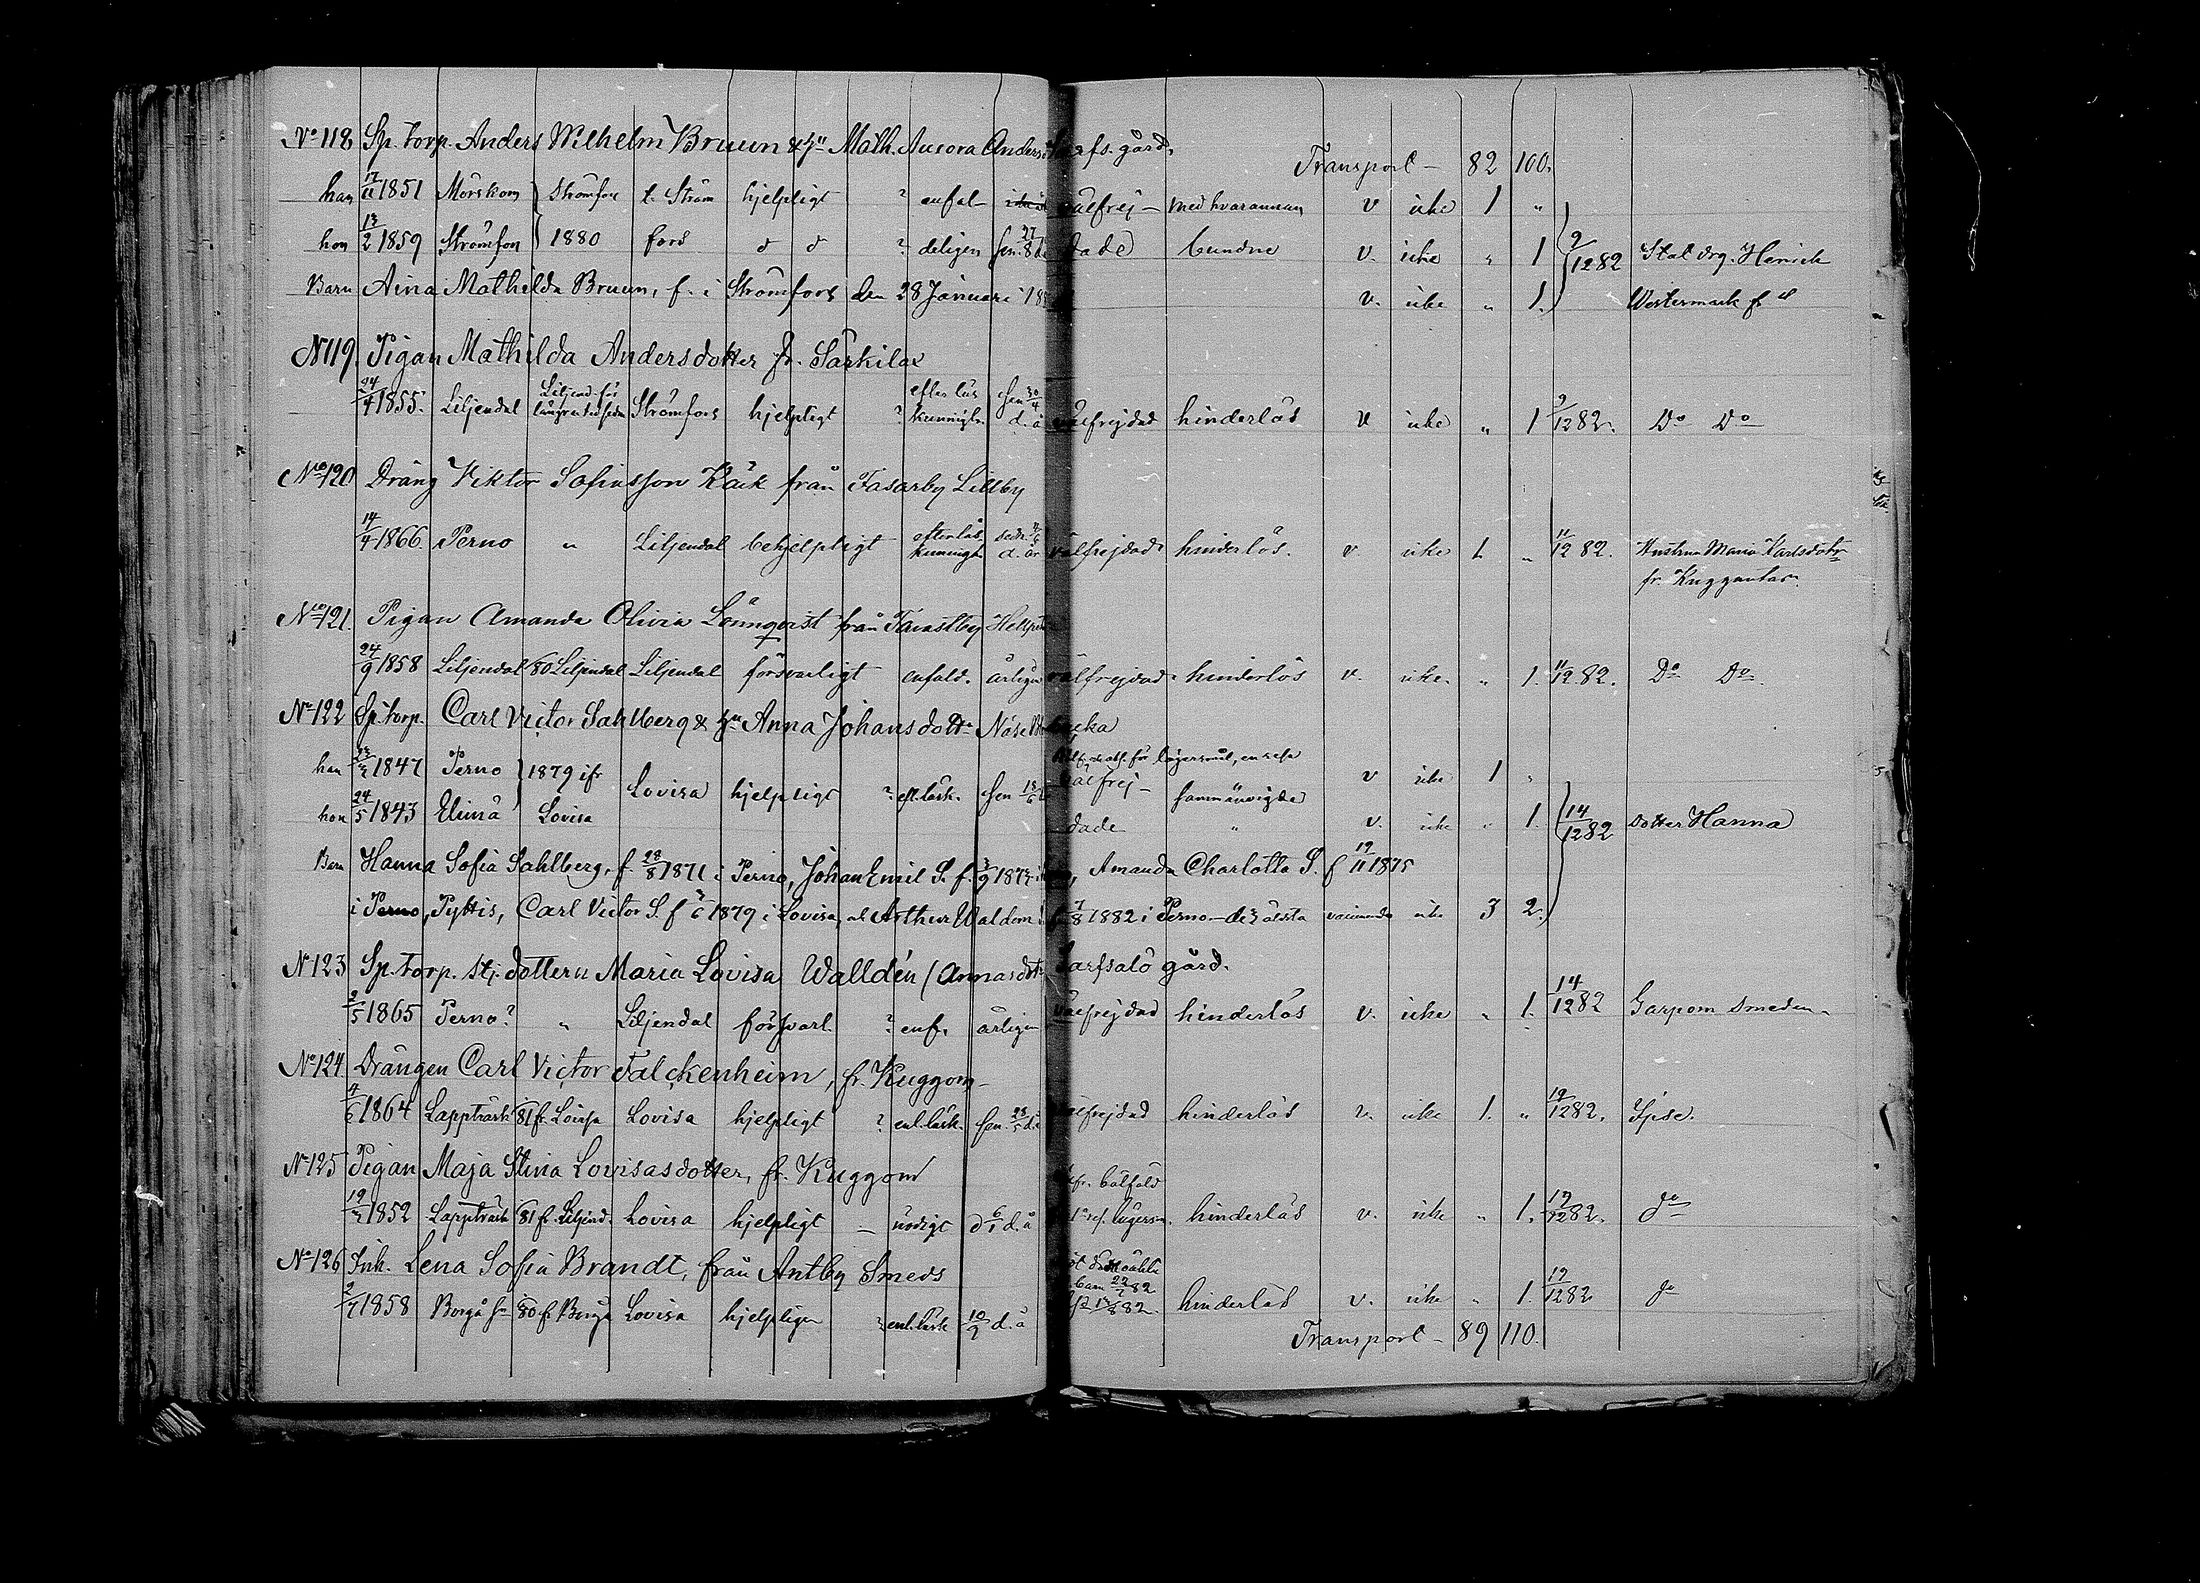 No 118 Sp. torp. Anders Wilhelm Bruun & hu Math. Aurora Anders Sarfs. gård.
Transport — 82 100.
han 17/11 1851 Mörskom Strömfors t. Ström hjelpligt ? enfal- välfrej- med hvarannan v icke 1 "
hon 13/2 1859 Strömfors 1880 fors d d ? deligen sen. 27/8 dade bundne v. icke " 1 9/12 82 Stal drg. Henrik
Barn Aina Mathilda Bruun, f. i Strömfors den 28 Januari 18 v. icke " 1. Westermark fr d
N 119. Pigan Mathilda Andersdotter fr. Särkilax
24/4 1855. Liljendal Liljend. för längre tid sedan Strömfors hjelpligt ? efter läs kunnigh. sen 30/4 d. å välfrejdad hinderlös v icke " 1 9/12 82. Do Do
No 120 Dräng Viktor Sofiasson Bäck från Fasarby Lillby
14/4 1866. Perno " Liljendal behjelpligt efter läs kunnigh. sedn. d. år välfrejdad hinderlös. v. icke 1. " 11/12 82. Hustrun Maria Karlsdotr
fr. Kuggantas.
No 121. Pigan Amanda Olivia Lönnqvist från Tavastby
24/9 1858 Liljendal /80 Liljendal Liljendal försvarligt enfald. årligen välfrejdad hinderlös v. icke. " 1. 11/12 82. Do Do.
No 122 Sp. torp. Carl Victor Sahlberg & hu Anna Johansdottr Näse backa
han 1847 Perno 1879 ifr Lovisa hjelpligt ? ef. läsk. sen 18/6 för lägersmål, en resa välfrej- sammanvigda v icke 1 "
hon 24/5 1843 Elimä Lovisa dade " v. icke " 1. 14/12 82 dotter Hanna
Barn Hanna Sofia Sahlberg, f. 28/8 1871 i Perno, Johan Emil S. f. 3/9 1877 Amanda Charlotta S. f 19/11 1875
i Perno, Pyttis, Carl Victor S. f 6 1879 i Lovisa, o Arthur Waldem. 7/8 1882 i Perno — de 3 älsta vaccinerade icke 3 2.
N 123 Sp. torp. stj. dottern Maria Lovisa Walldén (Annasdotr Sarfsalö gård.
2/5 1865 Perno? " Liljendal försvarl. ? enf. årligen välfrejdad hinderlös v. icke " 1. 14/12 82 Garpom Smeden.
No 124 Drängen Carl Victor Falckenheim, fr. Kuggom
4/6 1864 Lappträsk 81 fr. Lovisa Lovisa hjelpligt ? enl. läsk. sen. 28/5 d. välfrejdad hinderlös v. icke 1. " 19/12 82. Ipse.
N 125 Pigan Maja Stina Lovisasdotter, fr. Kuggom
19 1852 Lappträsk 81 fr. Liljend. Lovisa hjelpligt — nödigt d 6/1 d. å lägersm. hinderlös v. icke " 1. 19/12 82. do
No 126 Inh. Lena Sofia Brandt, från Antby Smeds
2/7 1858 Borgå sn 80 f. Borgå Lovisa hjelpligen ? enl. läsk 10/9 d. å barn 22/7 82 hinderlös v. icke " 1. 19/12 82 do
Transport — 89 110.